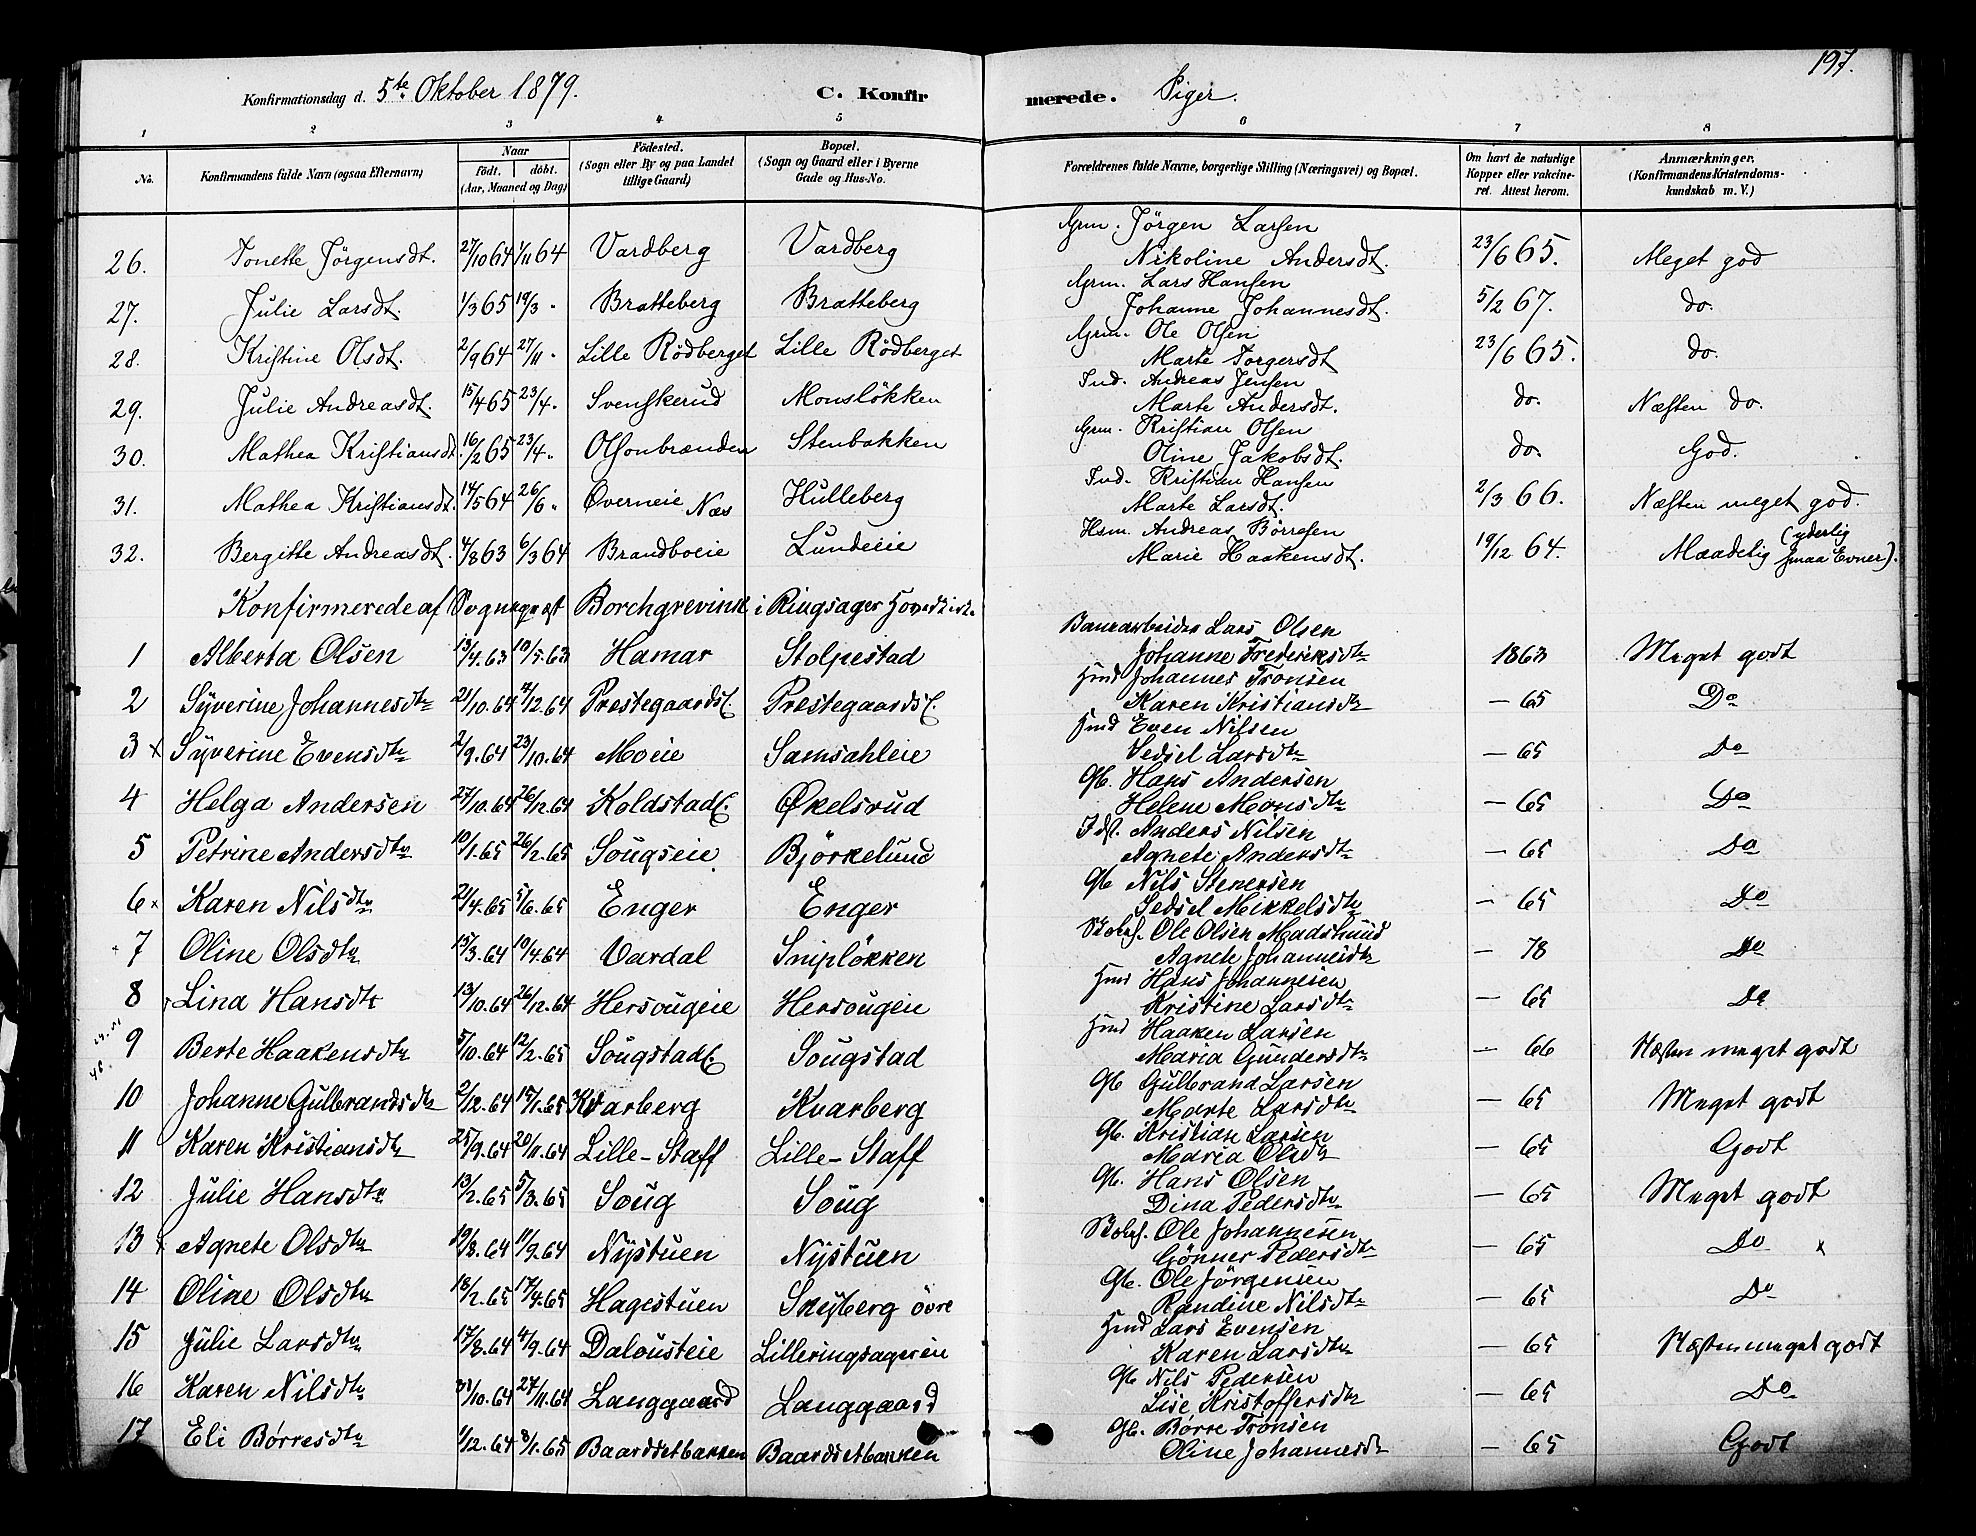 197.
Konfirmationsdag d. 5te Oktober 1879. C. Konfirmerede. Piger.
1 2 3 4 5 6 7 8
No. Konfirmandens fulde Navn (ogsaa Efternavn) Naar født. døbt. (Aar, Maaned og Dag) Födested. (Sogn eller By og paa Landet tillige Gaard) Bopæl. (Sogn og Gaard eller i Byerne Gade og Hus-No. Forældrenes fulde Navne, borgerlige Stilling (Næringsvei) og Bopæl. Om havt de naturlige Kopper eller vakcineret. Attest herom. Anmærkninger. (Konfirmandens Kristendomskundskab m. V.)
26. Tonette Jörgensdt. 27/10 64 1/11 64 Vardberg Vardberg Grm. Jörgen Larsen Nikoline Andersdt. 23/6 65. Meget god
27. Julie Larsdt. 1/3 65 19/3 " Bratteberg Bratteberg Grm. Lars Hansen Johanne Johannesdt. 5/2 67. do.
28. Kristine Olsdt. 2/9 64 27/11 " Lille Rödberget Lille Rödberget Grm. Ole Olsen Marte Torgersdt 23/6 65. do.
29. Julie Andreasdt. 15/4 65 23/4 " Svenskerud Monslökken Ind. Andreas Jensen Marte Andersdt. do. Næsten do.
30. Mathea Kristiansdt. 16/2 65 23/4 " Olsonbrænden Stenbakken Grm. Kristian Olsen Oline Jakobsdt. do. God.
31. Mathea Kristiansdt. 14/5 64 26/6 " Øverneie Næs Hulleberg Ind. Kristian Hansen Marte Larsdt. 2/3 66. Næsten meget god.
32. Bergitte Andreasdt. 4/8 63 6/3 64 Brandboeie Lundeie Hsm. Andreas Börresen Marie Haakensdt. 19/12 64. Maadelig (yderlig smaa Evner).
Konfirmerede af Sognepræst Borchgrevink i Ringsager Hovedkirke
1 Alberta Olsen 13/4.63 10/5.63 Hamar Stolpestad Banearbeider Lars Olsen Johanne Frederiksdtr 1863 Meget godt
2 Syverine Johannesdtr 21/10.64 4/12.64 Prestegaardsf. Prestegaardsf. Hmd Johannes Tronsen Karen Kristiansdtr — 65 Do
3 x Syverine Evensdtr 2/9.64 23/10.64 Moeie Samsahleie Hmd Even Nilsen Sedsel Larsdtr — 65 Do
4 Helga Andersen 27/10.64 26/12.64 Koldstadf. Økelsrud Gb. Hans Andersen Helene Monsdtr — 65 Do
5 Petrine Andersdtr 10/1.65 26/2.65 Sougseie Björkelund Idst. Anders Nilsen Agnete Andersdtr — 65 Do
6 x Karen Nilsdtr 21/4.65 5/6.65 Enger Enger Gb Nils Stenersen Sedsel Mikkelsdtr — 65 Do
7 Oline Olsdtr 15/3.64 10/4.64 Vardal Sniplökken Ole Olsen Madshuus Agnete Johannesdtr — 78 Do
8 Lina Hansdtr 13/10.64 26/12.64 Hersougeie Hersougeie Hmd Hans Johannesen Kristine Larsdtr — 65 Do
9 Berte Haakensdtr 5/10.64 12/2.65 Sougstadf. Sougstad Hmd Haaken Larsen Maria Gundersdtr — 66 Næsten meget godt
10 Johanne Gulbrandsdtr 2/12.64 15/1.65 Kvarberg Kvarberg Gb Gulbrand Larsen Marte Larsdtr — 65 Meget godt
11 Karen Kristiansdtr 25/9.64 20/11.64 Lille-Staff Lille-Staff Gb. Kristian Larsen Maria Olsdtr — 65 Godt
12 Julie Hansdtr 13/2.65 5/3.65 Soug Soug Gb. Hans Olsen Dina Pedersdtr — 65 Meget godt
13 x Agnete Olsdtr 19/8.64 11/9.64 Nystuen Nystuen Ole Johannesen Gönner Pedersdtr — 65 Do x
14 Oline Olsdtr 18/2.65 17/4.65 Hagestuen Skyberg övre Gb. Ole Jörgensen Randine Nilsdtr — 65 Do
15 Julie Larsdtr 17/8.64 4/9.64 Dalousteie Lilleringsagereie Hmd Lars Evensen Karen Larsdtr — 65 Næsten meget godt
16 Karen Nilsdtr 31/10.64 27/11.64 Langgaard Langgaard Gb Nils Pedersen Lise Kristoffersdtr — 65 Do
17 Eli Børresdtr 1/12.64 8/1.65 Baardsetbakken Baardsetbakken Gb. Børre Tronsen Oline Johannesdtr — 65 Godt